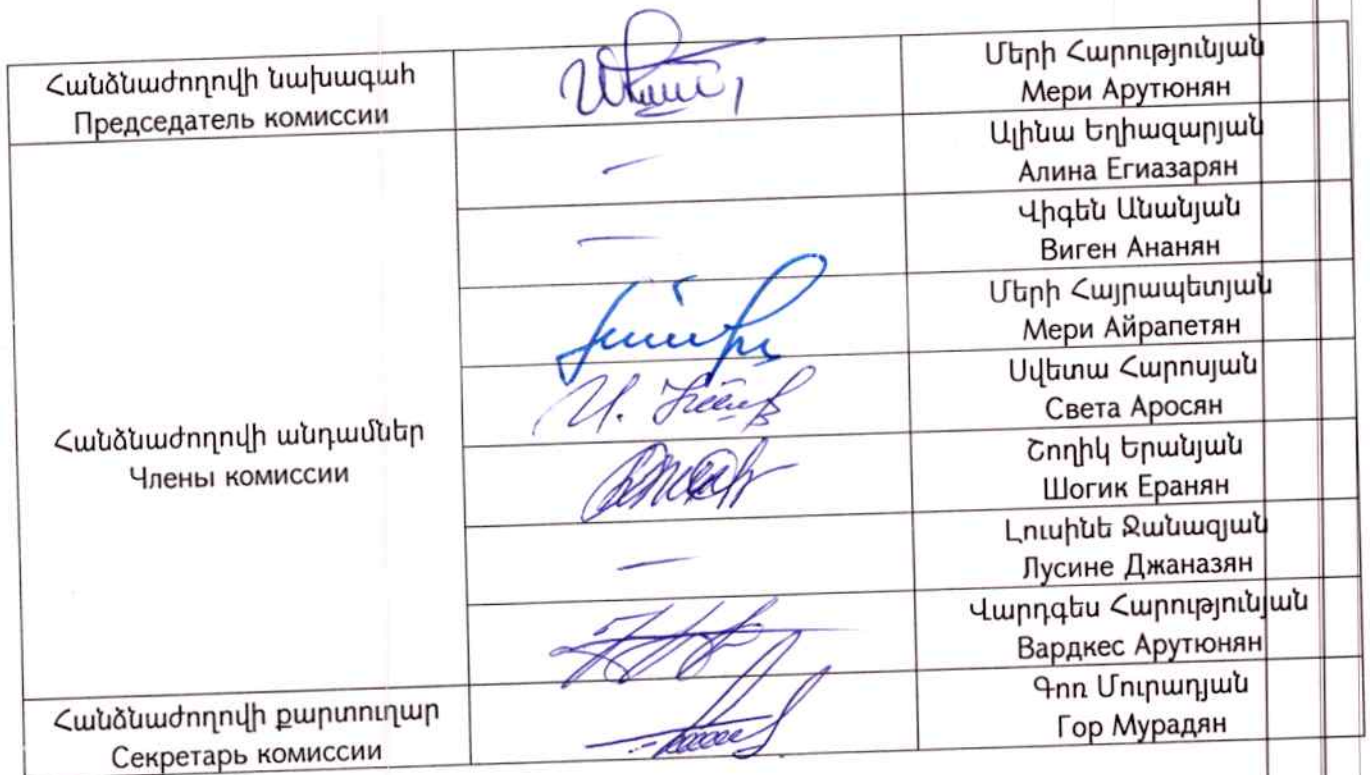 Հանձնաժողովի նախագահ
Председатель комиссии
Մերի Հարությունյան
Мери Арутюнян
Ալինա Եղիազարյան
Алина Егиазарян
Վիգեն Անանյան
Виген Ананян
Մերի Հայրապետյան
Мери Айрапетян
Սվետա Հարոսյան
Света Аросян
Հանձնաժողովի անդամներ
Члены комиссии
Շողիկ Երանյան
Шогик Еранян
Լուսինե Ջանազյան
Лусине Джаназян
Վարդգես Հարությունյան
Вардкес Арутюнян
Հանձնաժողովի քարտուղար
Секретарь комиссии
Գոռ Մուրադյան
Гор Мурадян